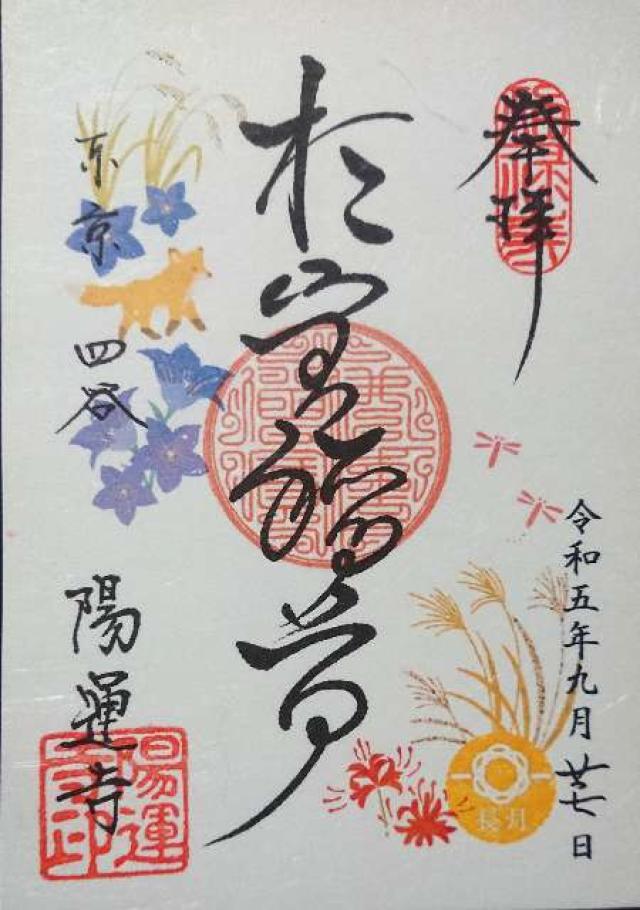 奉拝
令和五年九月廿七日
長月
於岩稲荷
東京 四谷
陽運寺
陽運
寺印